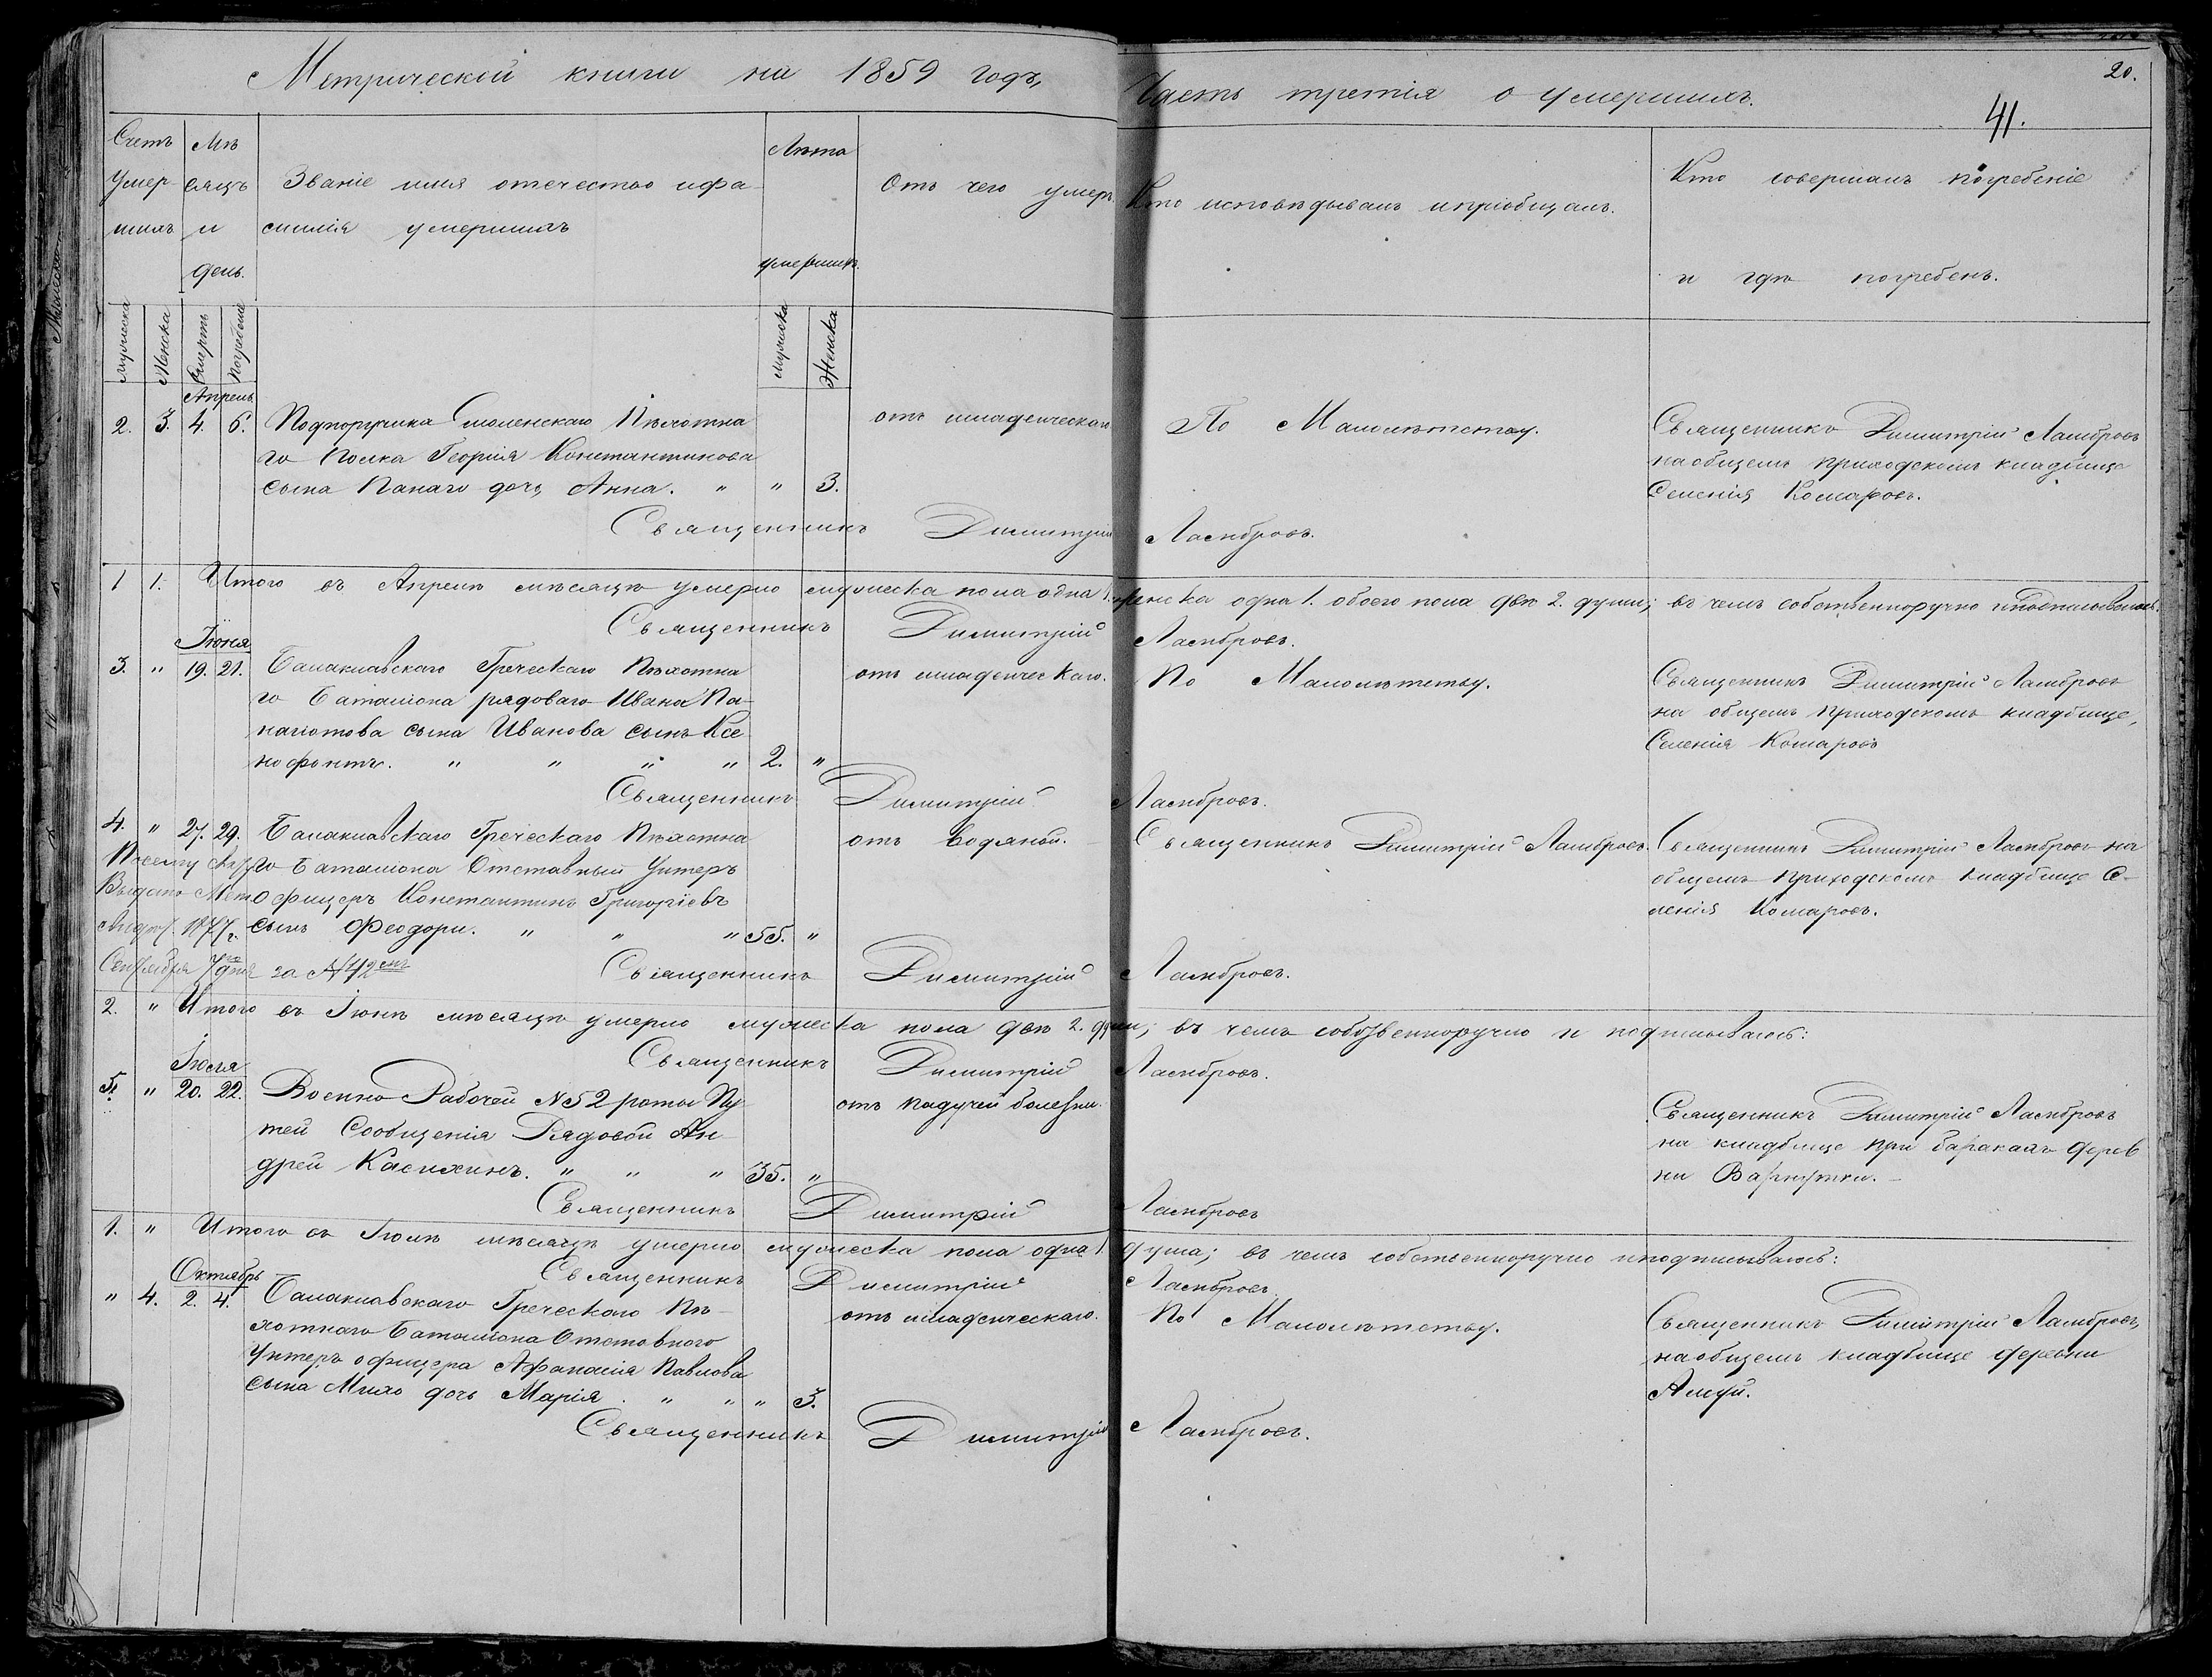 Метрической книги на 1859 годъ,
Часть третія о умершихъ.
20.
41.
Счетъ умер-
шихъ
Мѣ
сяцъ
и
день.
Званіе имя отечество ифа
милія умершихъ
Лѣта
умершихъ.
Отъ чего умеръ.
Кто исповѣдывалъ ипріобщалъ.
Кто совершалъ погребеніе
и гдѣ погребенъ.
мужеска
Женска
Смерть
Погребеніе
мужеска
Женска
Апрель
2. 3. 4. 6. Подпоручика Смоленскаго Пѣхотна
го Полка Георгія Константинова
сына Панаго дочь Анна. " " 3.
отъ младенческаго
По Малолѣтству.
Священникъ Димитрій Ламбровъ
наобщемъ приходскомъ кладбище
Селенія Комаровъ.
Священникъ Димитрій Ламбровъ.
1 1. Итого въ Апрелѣ мѣсяцѣ умерло мужеска пола одна 1. женска одна 1. обоего пола двѣ 2. души; въ чемъ собственноручно иподписываюсь.
Священникъ Димитрій Ламбровъ.
Іюня
3. " 19. 21. Балаклавскаго Греческаго Пѣхотна
го Баталіона рядоваго Ивана Па-
нагіотова сына Иванова сынъ Ксе
нофонтъ. " " " " 2. "
отъ младенческаго.
По Малолѣтству.
Священникъ Димитрій Ламбровъ
на общемъ приходскомъ кладбище,
Селенія Комаровъ
Священникъ Димитрій Ламбровъ.
4. " 27. 29. Балаклавскаго Греческаго Пѣхотна
го Баталіона Отставный Унтеръ
Офицеръ Константинъ Григоріевъ
сынъ Феодори. " " " 55. "
Выдано
1877 г.
Сентября 7 дня за №42
отъ водяной.
Священникъ Димитрій Ламбровъ.
Священникъ Димитрій Ламбровъ на
общемъ приходскомъ кладбище Се-
ленія Комаровъ.
Священникъ Димитрій Ламбровъ.
2. " Итого въ Іюнѣ мѣсяцѣ умерло мужеска пола двѣ 2. души; въ чемъ собственноручно и подписываюсь:
Священникъ Димитрій Ламбровъ.
Іюля
5. " 20. 22. Военно Рабочей №52 роты Пу
тей Сообщенія Рядовой Ан-
дрей Касихинъ. " " " 35. "
отъ падучей болезни.
Священникъ Димитрій Ламбровъ
на кладбище при баракахъ дерев
ни Варнутки.
Священникъ Димитрій Ламбровъ
1. " Итого въ Іюлѣ мѣсяцѣ умерло мужеска пола одна 1. душа; въ чемъ собственноручно иподписываюсь:
Священникъ Димитрій Ламбровъ.
Октябрь
" 4. 2. 4. Балаклавскаго Греческаго Пѣ-
хотнаго Баталіона Отставного
Унтеръ офицера Афанасія Павлова
сына Михо дочь Марія. " " " 3.
отъ младенческаго.
По Малолѣтству.
Священникъ Димитрій Ламбровъ,
наобщемъ кладбище деревни
Алсуй.
Священникъ Димитрій Ламбровъ.